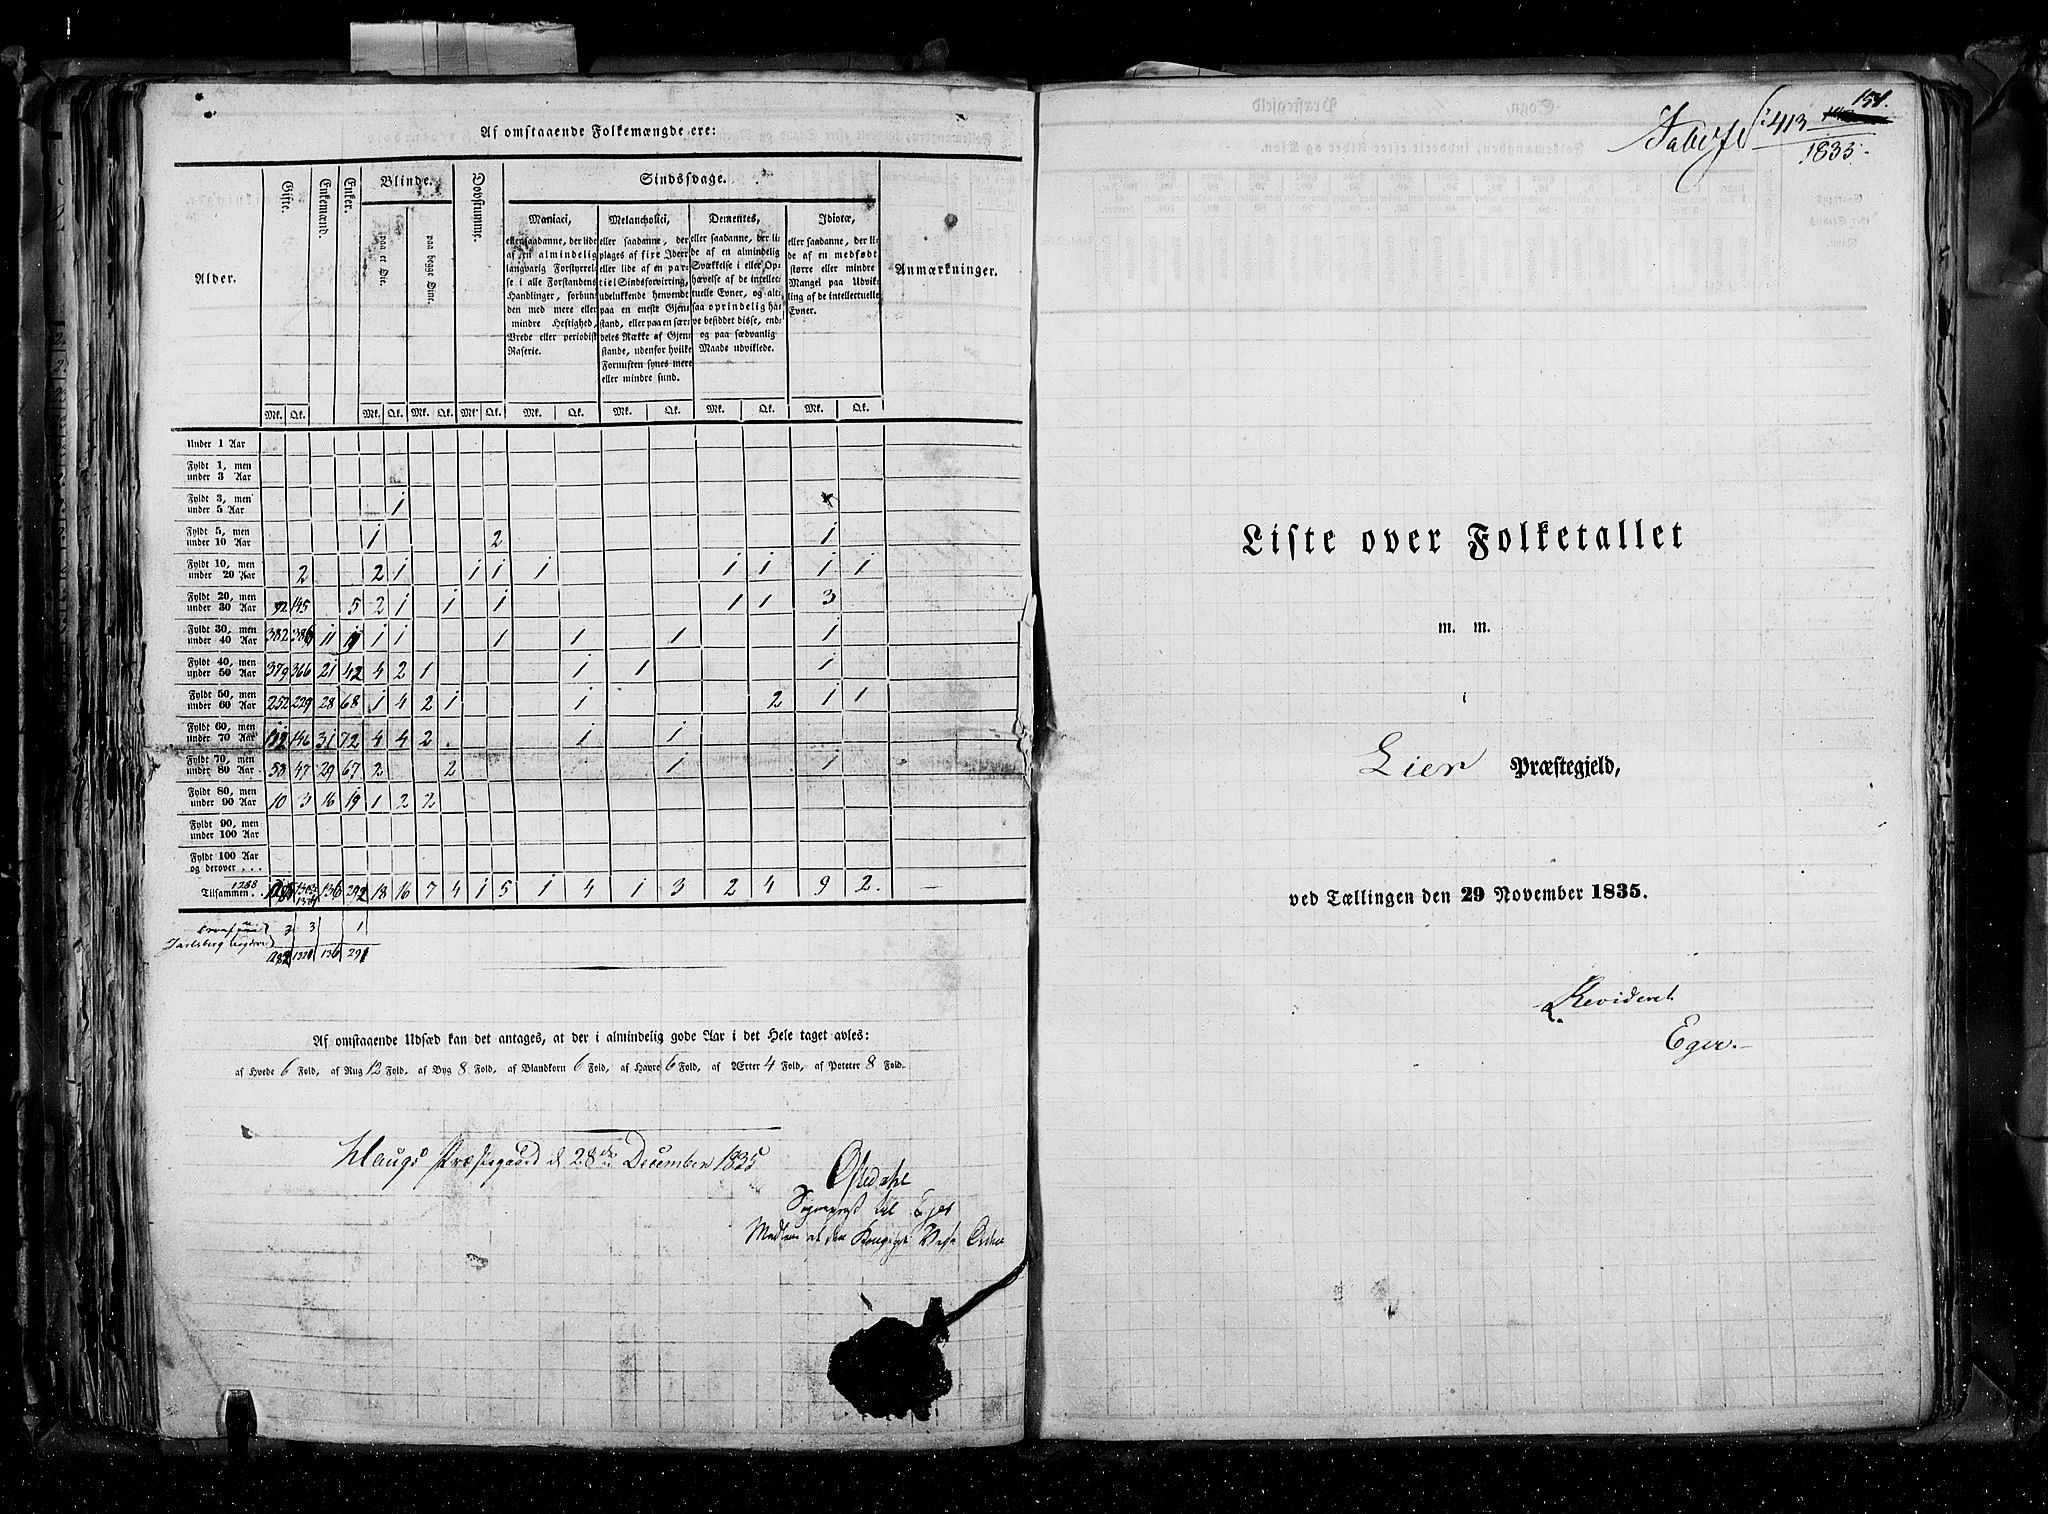 Af omstaaende Folkemængde ere:
Alder.
Gifte.
Enkemænd.
Enker.
Blinde.
paa et Øie.
paa begge Øine.
Døvstumme.
Sindssvage.
Maniaci,
eller saadanne, der lide
af en almindelig
langvarig Forstyrrel-
se i alle Forstandens
Handlinger, forbun-
den med mere eller
mindre Heftighed,
Vrede eller periodisk
Raserie.
Melancholici,
eller saadanne, der
plages af fixe Ideer
eller lide af en par-
tiel Sindsforvirring,
udelukkende henvendt
paa en eneste Gjen-
stand, eller paa en sær-
deles Række af Gjen-
stande, udenfor hvilke
Fornuften synes mere
eller mindre sund.
Dementes,
eller saadanne, der li-
de af en almindelig
Svækkelse i eller Op-
hævelse af de intellec-
tuelle Evner, og alt-
saa oprindelig ha-
ve besiddet disse, end-
og paa sædvanlig
Maade udviklede.
Idiotæ,
eller saadanne, der li-
de af en medfødt
større eller mindre
Mangel paa Udvik-
ling af de intellectuelle
Evner.
Anmærkninger.
Mk. Qk. Mk. Qk. Mk. Qk. Mk. Qk. Mk. Qk. Mk. Qk. Mk. Qk. Mk. Qk.
Under 1 Aar
Fyldt 1, men under 3 Aar
Fyldt 3, men under 5 Aar 1
Fyldt 5, men under 10 Aar 1 2 1
Fyldt 10, men under 20 Aar 2 2 1 1 1 1 1 1 1 1
Fyldt 20, men under 30 Aar 92 145 5 2 1 1 1 1 1 3
Fyldt 30, men under 40 Aar 382 386 11 19 1 1 1 1 1 1
Fyldt 40, men under 50 Aar 379 366 21 42 4 2 1 1 1 1
Fyldt 50, men under 60 Aar 252 229 28 68 1 4 2 1 1 2 1 1
Fyldt 60, men under 70 Aar 112 146 31 72 4 4 2 1 1
Fyldt 70, men under 80 Aar 58 47 29 67 2 2 1 1
Fyldt 80, men under 90 Aar 10 3 16 19 1 2 2
Fyldt 90, men under 100 Aar
Fyldt 100 Aar og derover . . .
Tilsammen. 1288 1324 136 292 18 16 7 4 1 5 1 4 1 3 2 4 9 2.
3 3 1
Jarlsberg 1321 136 291
Af omstaaende Udsæd kan det antages, at der i almindelig gode Aar i det Hele taget avles:
af Hvede 6 Fold, af Rug 12 Fold, af Byg 8 Fold, af Blandkorn 6 Fold, af Havre 6 Fold, af Ærter 4 Fold, af Poteter 8 Fold.
Haugs Præstegaard d. 28de December 1835
Ofstedahl
Sogneprest til Eger
Medlem af den Kongelige Vasa Orden
151.
413
1835.
Liste over Folketallet
m. m.
i
Lier Præstegjeld,
ved Tællingen den 29 November 1835.
Revideret
Eger.